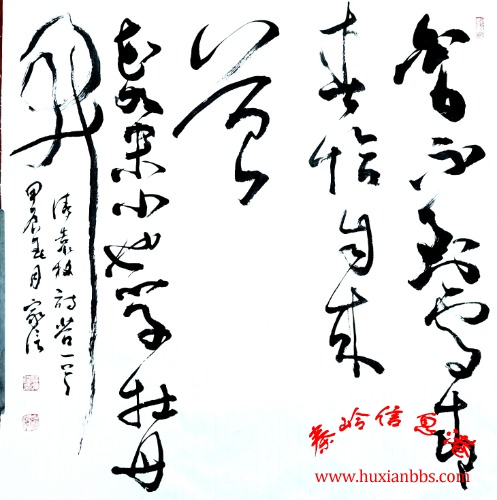 白日不到處青
春恰自来
苔
花如米小也学牡丹
開
清袁枚詩苔一首
甲辰春月家信
秦岭信息港
www.huxianbbs.com